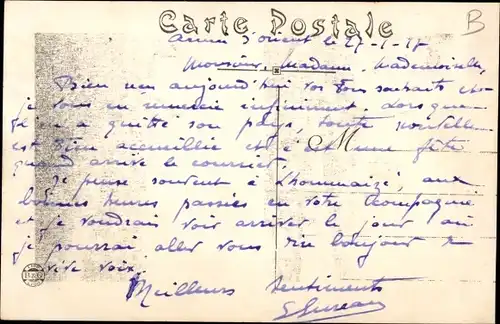 Carte Postale
B
d'orient le 27-1-17
Monsieur, Madame, Mademoiselle,
Bien reçu aujourd'hui vos bons souhaits et
je vous en remercie infiniment. Lorsque
l'on a quitté son pays, toute nouvelle
est bien accueillie et c'est une fête
quand arrive le courrier.
Je pense souvent à Lhommaizé, aux
bonnes heures passées en votre Compagnie
et je voudrais voir arriver le jour où
je pourrai aller vous dire bonjour de
vive voix.
Meilleurs Sentiments
M